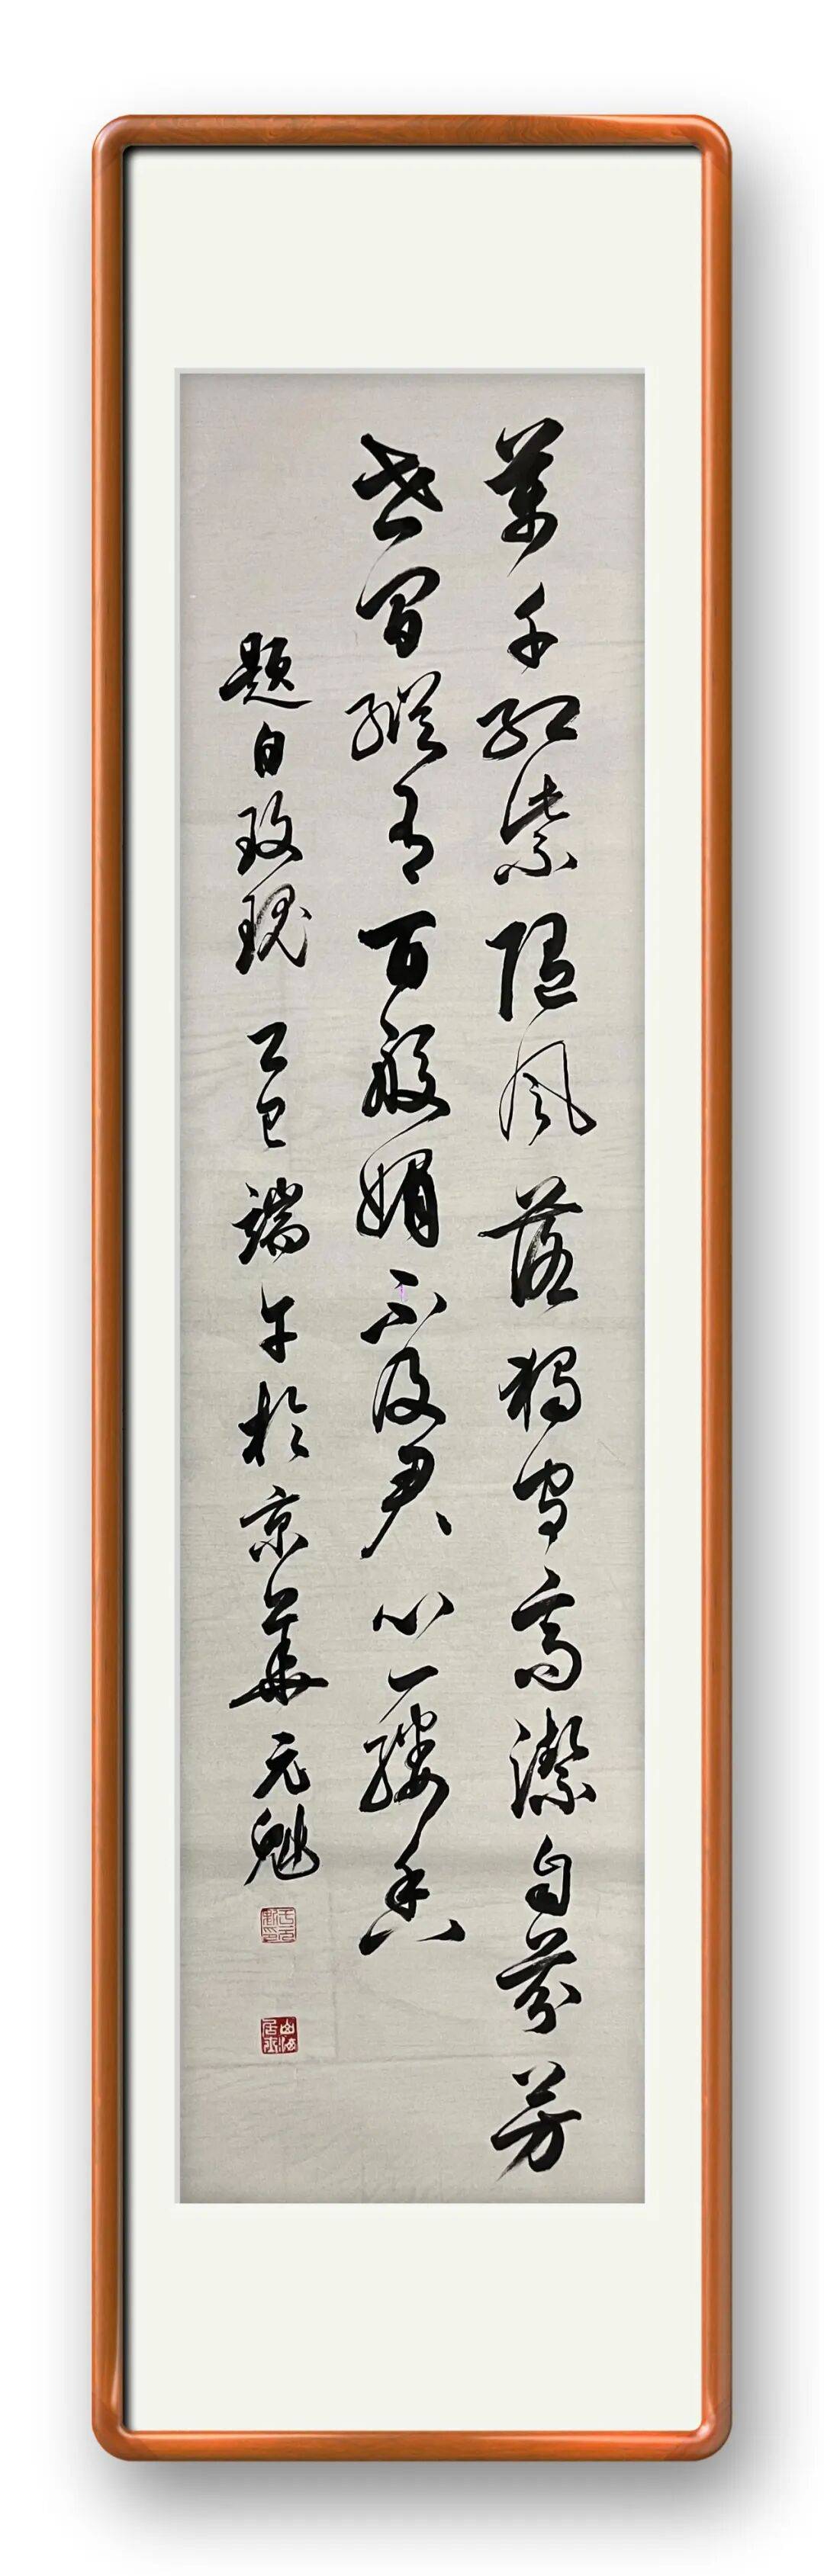 萬千紅紫隨風落獨守高潔自芬芳
世間縱有百般媚不及君心一縷香
題白玫瑰 乙巳端午於京華元魁